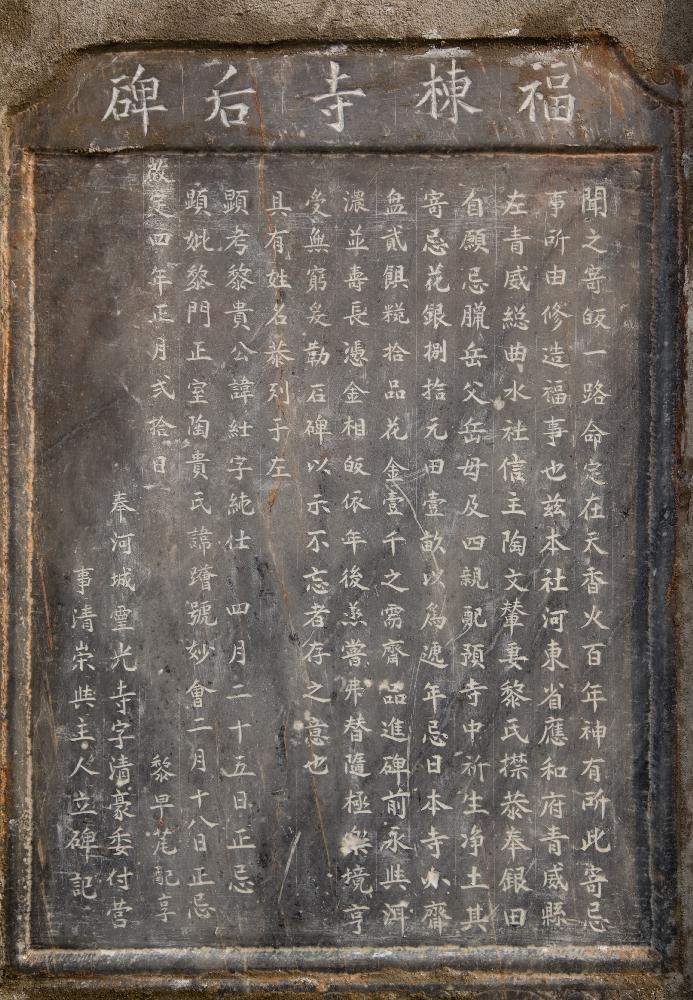 福棟寺后碑
聞之寄皈一路命定在天香火百年神有所此寄忌
事所由修造福事也兹本社河東省應和府青威縣
左青威総曲水社信主陶文輦妻黎氏㩒恭奉銀田
自願忌臘岳父岳母及四親配預寺中祈生净土其
寄忌花銀捌拾元田壹畝以為遞年忌日本寺小齋
盆貳俱糍拾品花金壹千之雱齋品進碑前永與洱
濃並壽長憑金相皈依年後羔嘗弗替隨極樂境亨
受無窮爰勒石碑以示不忘者存之意也
具有姓名恭列于左
顕考黎貴公諱紸字純仕 四月二十五日正忌
顕妣黎門正室陶貴氏諱蹭號妙會二月十八日正忌
啟定四年正月弍拾日 黎早芼配享
奉河城靈光寺字清豪委付営
事清崇與主人立碑記